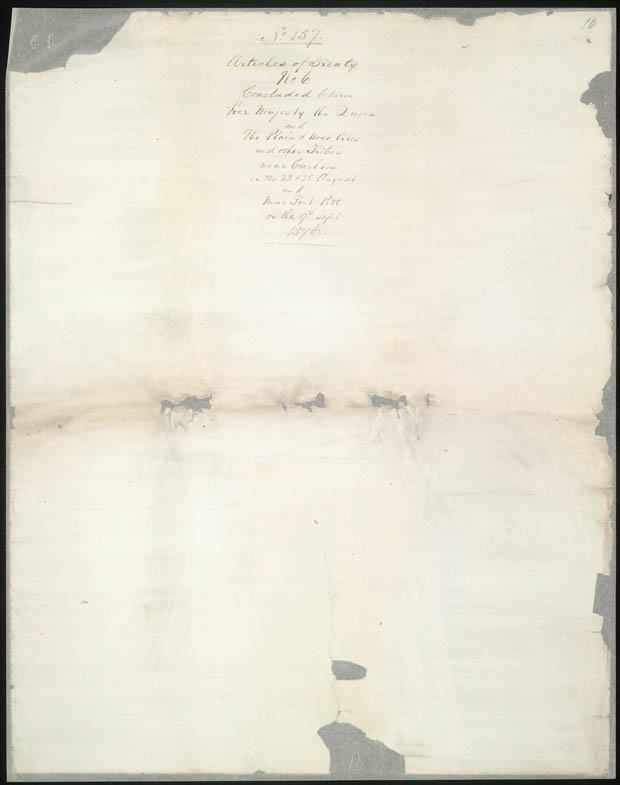 No 157.
16
Articles of Treaty
No 6
Concluded between
Her Majesty the Queen
and
The Plain & Wood Crees
and other Tribes
near Carlton
on the 23 & 28 August
and
Near Fort Pitt
on the 9th Sept.
1876.